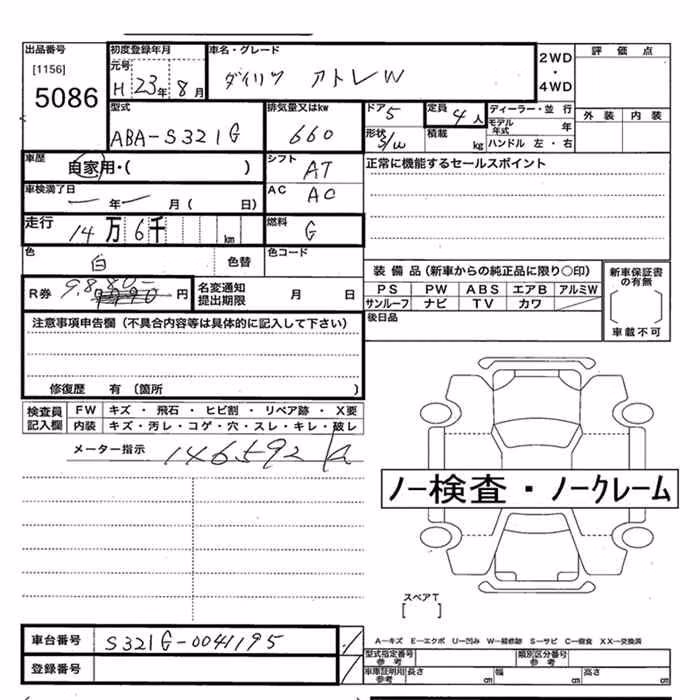 出品番号
[1156]
5086
初度登録年月
元号
H 23年 8月
車名・グレード
ダイハツ アトレW
2WD
・
4WD
評価点
外装 内装
型式
ABA-S321G
排気量又はkw
660
ドア 5
形状 S/W
定員 4人
積載 kg
ディーラー・並行
モデル年式 年
ハンドル 左・右
車歴
自家用・( )
シフト
AT
正常に機能するセールスポイント
車検満了日
ー年ー月( 日)
AC
AC
走行
14万6千 km
燃料
G
色
白
色替
色コード
R券 9,880- 円
名変通知
提出期限
月 日
装備品(新車からの純正品に限り○印)
PS PW ABS エアB アルミW
サンルーフ ナビ TV カワ
後日品
新車保証書
の有無
車載不可
注意事項申告欄(不具合内容等は具体的に記入して下さい)
修復歴 有 (箇所 )
検査員
記入欄
FW キズ・飛石・ヒビ割・リペア跡・X要
内装 キズ・汚レ・コゲ・穴・スレ・キレ・破レ
メーター指示 146592 km
ノー検査・ノークレーム
スペアT
[ ]
車台番号 S321G-0041195
登録番号
A-キズ E-エクボ U-凹み W-補修跡 S-サビ C-腐食 XX-交換済
型式指定番号
参考
類別区分番号
参考
車庫証明用
参考
長さ cm 幅 cm 高さ cm